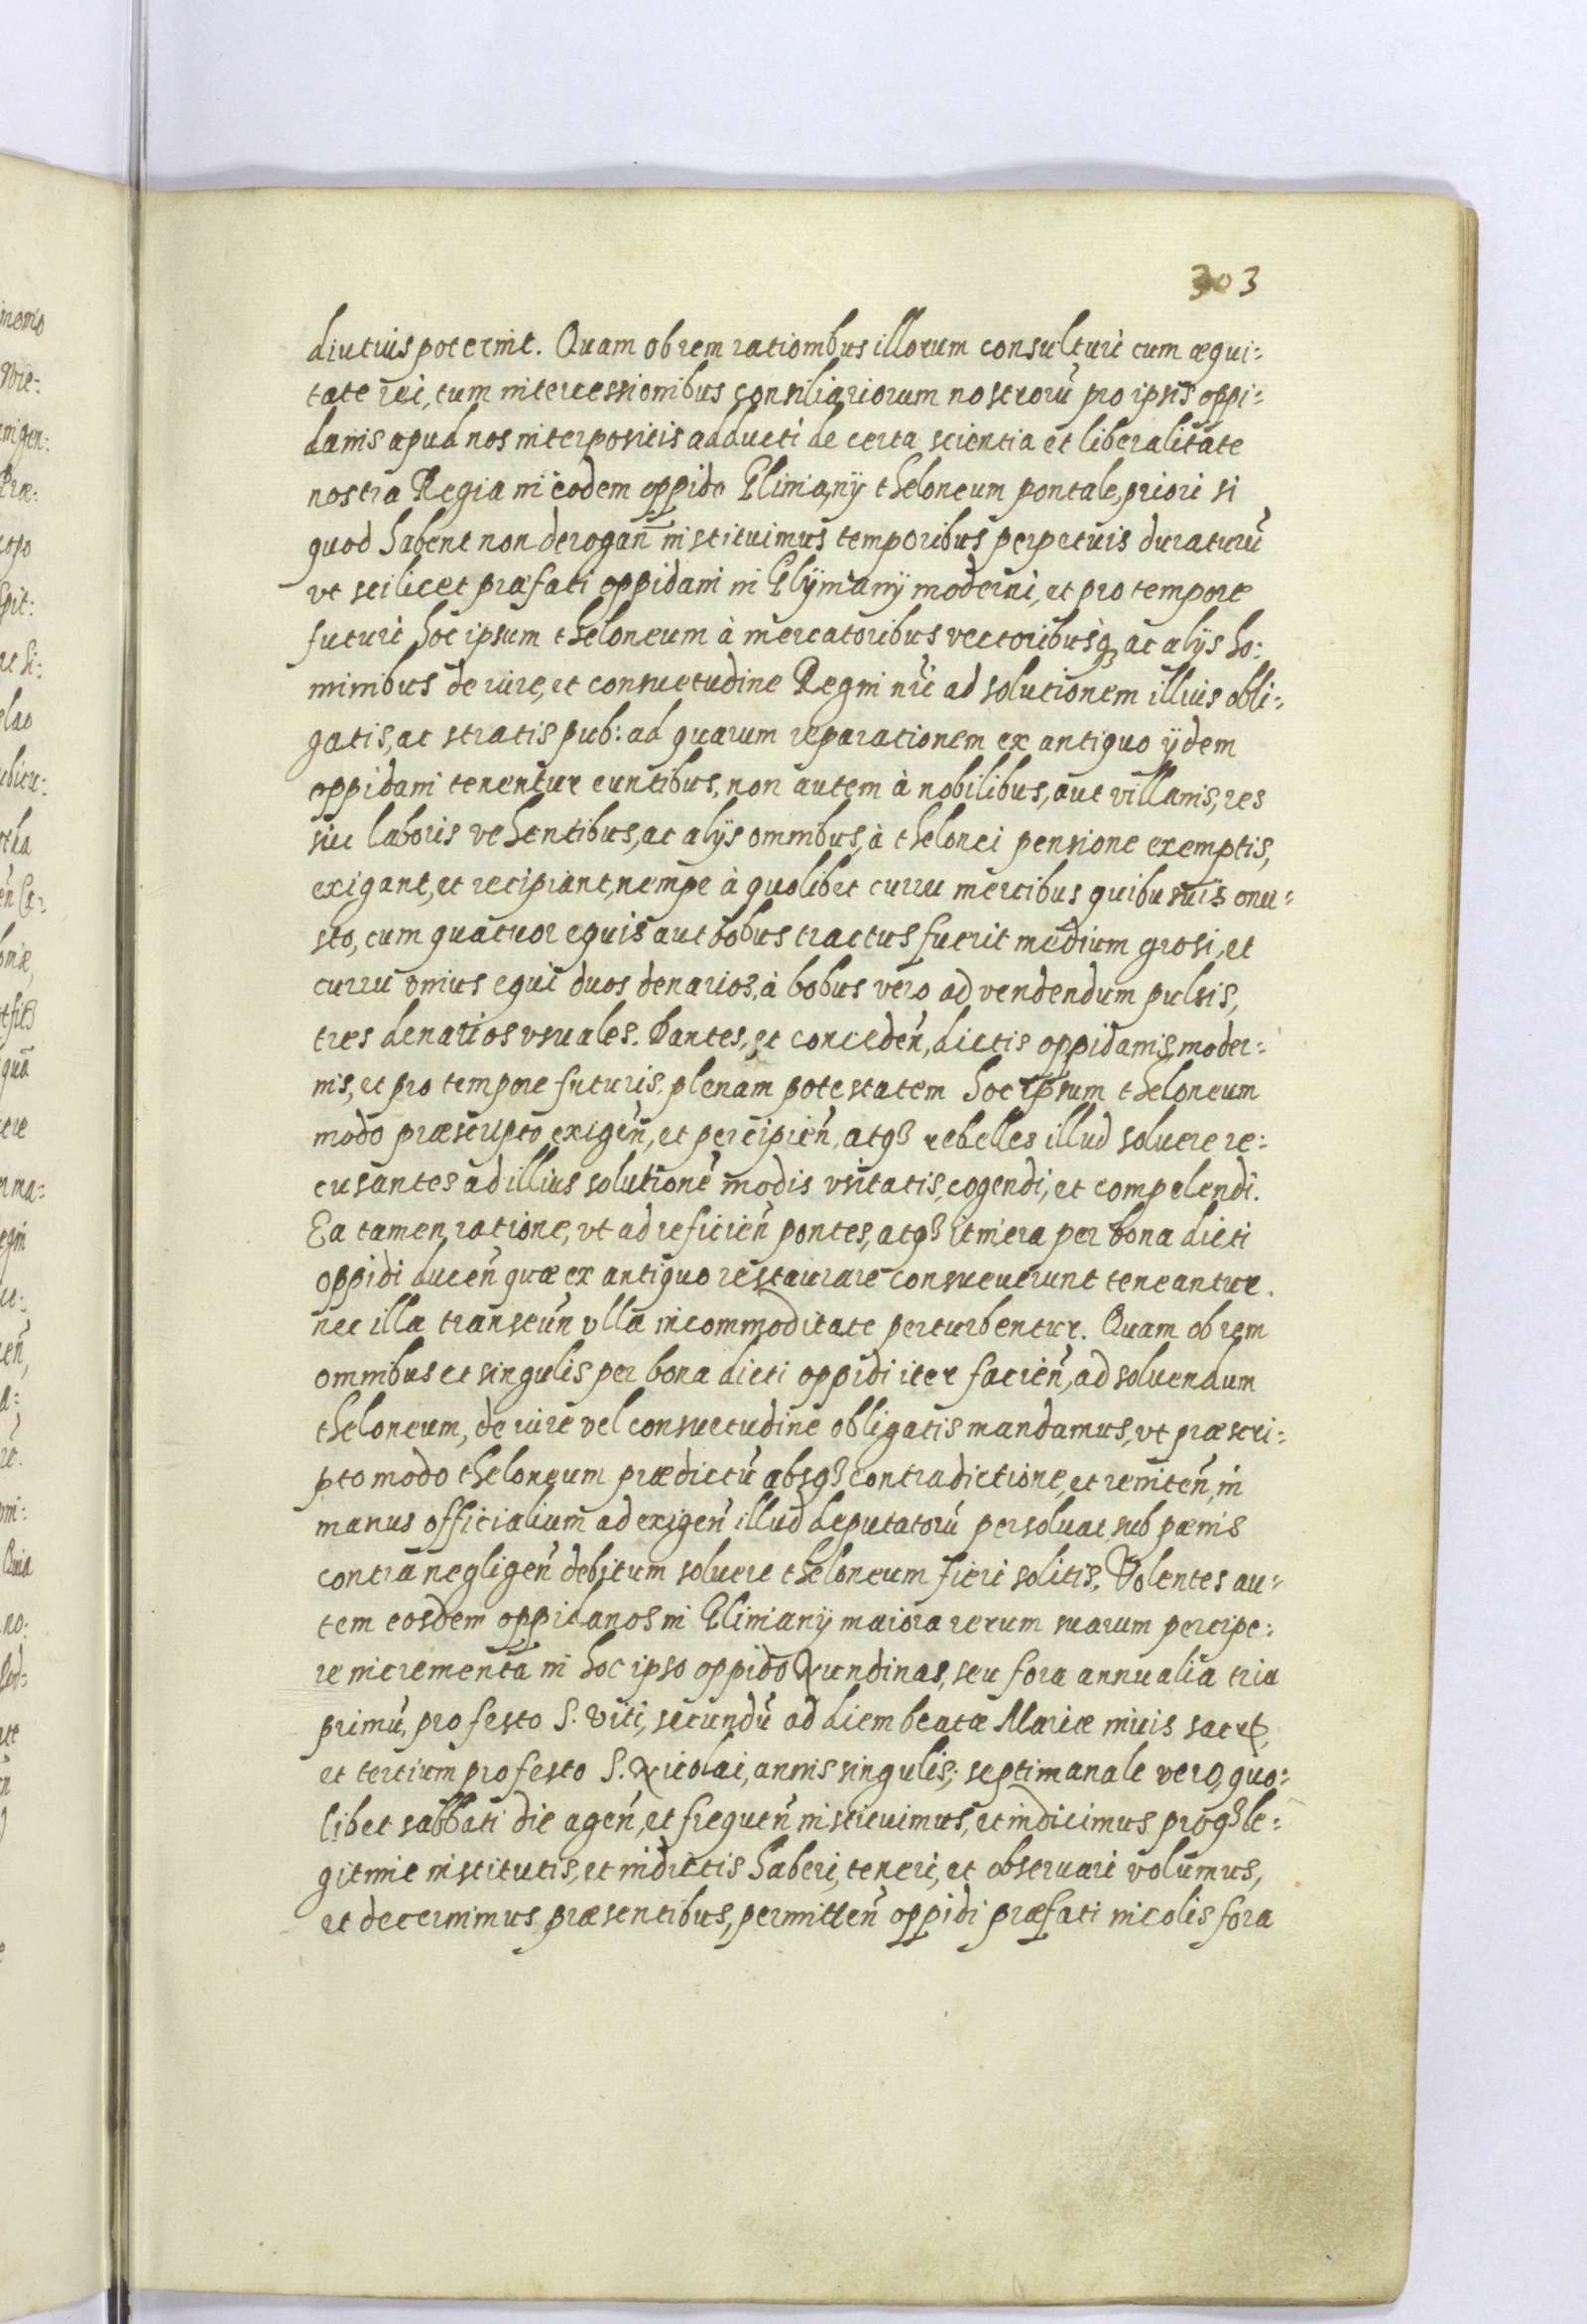 303
diutius poterint. Quam ob rem rationibus illorum consulturi cum æqui:
tate rei, tum intercessionibus consiliariorum nostrorū pro ipsis oppi:
danis apud nos interpositis adducti de certa scientia et liberalitate
nostra Regia in eodem oppido Climanÿ theloneum pontale, priori si
quod habent non derogan̄ instituimus temporibus perpetuis duraturū
vt scilicet præfati oppidani in Clÿmanÿ moderni, et pro tempore
futuri hoc ipsum theloneum à mercatoribus vectoribusq3 ac alÿs ho:
minibus de iure, et consuetudine Regni nr̄i ad solutionem illius obli:
gatis, ac stratis pub: ad quarum reparationem ex antiquo ÿdem
oppidani tenentur euntibus, non autem à nobilibus, aut villanis, res
siue laboris vehentibus, ac alÿs omnibus, à thelonei pensione exemptis,
exigant, et recipiant, nempe à quolibet curru mercibus quibusuis onu:
sto, cum quatuor equis aut bobus tractus fuerit medium grosi, et
curru vnius equi duos denarios, à bobus vero ad vendendum pulsis,
tres denarios vsuales. Dantes, et conceden̄, dictis oppidanis, moder:
nis, et pro tempore futuris, plenam potestatem hoc ipsum theloneum
modo præscripto exigen̄, et percipien̄, atq3 rebelles illud soluere re:
cusantes ad illius solutionē modis vsitatis, cogendi, et compelendi.
Ea tamen ratione, vt ad reficien̄ pontes, atq3 itinera per bona dicti
oppidi ducen̄ quæ ex antiquo restaurare consueuerunt teneantur.
nec illa transeun̄ vlla incommoditate perturbentur. Quam ob rem
omnibus et singulis per bona dicti oppidi iter facien̄, ad soluendum
theloneum, de iure vel consuetudine obligatis mandamus, vt præscri:
pto modo theloneum prædictū absq3 contradictione, et reniten̄, in
manus officialium ad exigen̄ illud deputatorū persoluat, sub pænis
contra negligen̄ debitum soluere theloneum fieri solitis. Volentes au:
tem eosdem oppidanos in Climanÿ maiora rerum suarum percipe:
re incrementa in hoc ipso oppido Nundinas, seu fora annualia tria
primū, pro festo S. Viti, secundū ad diem beatæ Mariæ niuis sacrū,
et tertium pro festo S. Nicolai, annis singulis; septimanale vero, quo:
libet sabbati die agen̄, et frequen̄ instituimus, et indicimus proq3 le:
gitime institutis, et indictis haberi, teneri, et obseruari volumus,
et decernimus præsentibus, permitten̄ oppidi præfati incolis fora